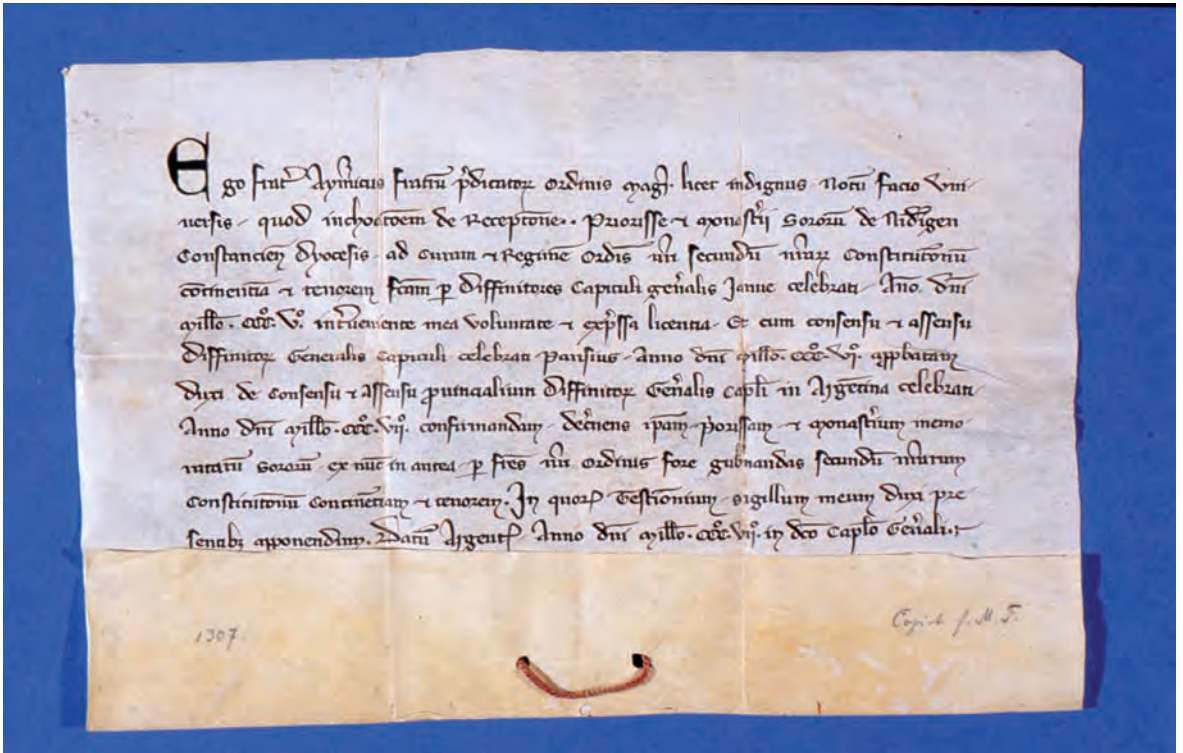 Ego frat̄ Aym̄icus fratrū p̄dicatoꝝ ordinis maḡr. licet indignus. Notū facio vni-
uersis. quod inchoatōem de Receptōne.. Priorisse ⁊ monast̄ii Sororū de
Constancien̄ dyocesis. ad curam ⁊ Regimē ordis nr̄i secundū nr̄aꝝ Constitutōnū
cōtinentia ⁊ tenorem fc̄am p̄ diffinitores Capituli gen̄alis Janue celebrati. Año. dn̄i
mill̄o. ccc̊. v̊. int̄ueniente mea voluntate ⁊ exp̄ssa licentia. Et cum consensu ⁊ assensu
diffinitoꝝ Generalis Capituli celebrati parisius. Anno dn̄i mill̄o. ccc̊. vj̊. app̄batam
duxi de consensu ⁊ assensu ꝓuincialium diffinitoꝝ Gen̄alis Capl̄i in Arḡetina celebrati.
Anno dn̄i mill̄o. ccc̊. vij̊. confirmandam. dec̄nens ip̄am p̄orissam. ⁊ monast̄ium memo-
ratarū Sororū. ex nūc in antea. p̄ fr̄es nr̄i ordinis fore gub̄nandas secundū nr̄arum
Constitutōnū Contin̄etiam ⁊ tenorem. In quoꝝ Testīonium. sigillum meum duxi pre-
sentibꝫ apponendum. Datū Argent̄ Anno dn̄i mill̄o. ccc̊. vij̊. in dc̄o Capl̄o Gen̄ali.
1307.
Copirt f. M. F.